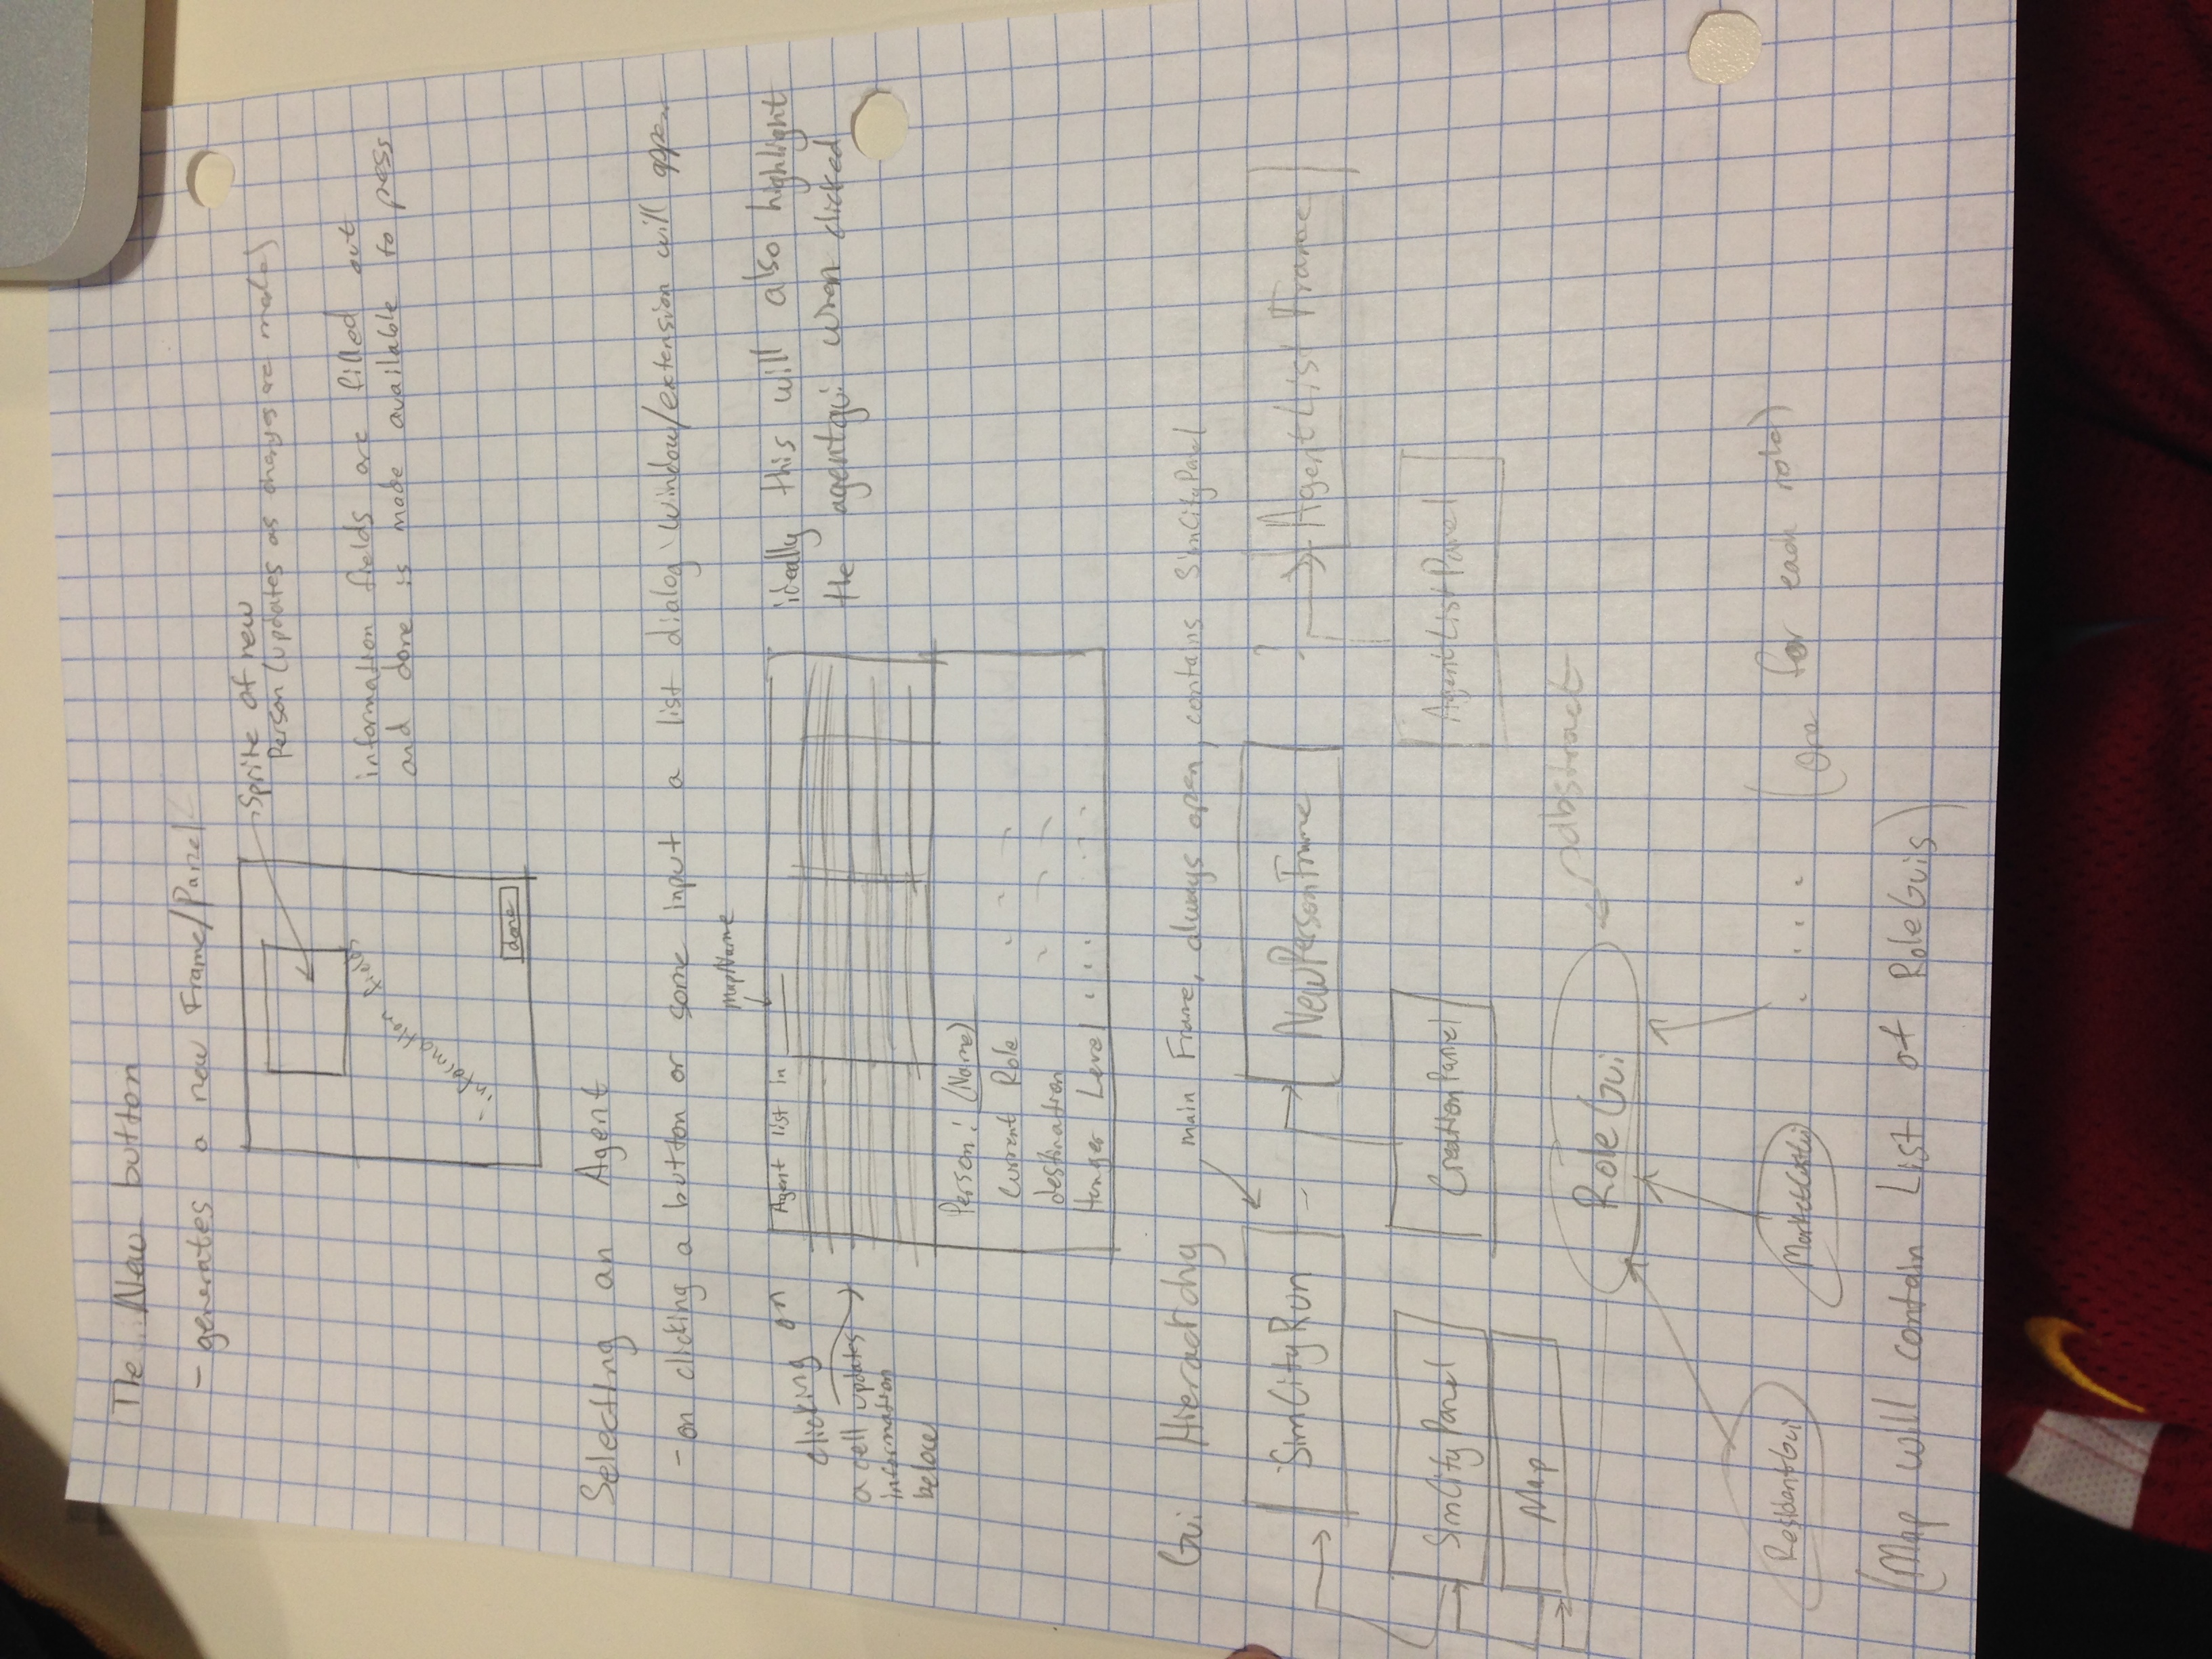 The New button
- generates a new Frame/Panel
Sprite of new
Person (updates as changes are made)
information fields
information fields are filled out
and done is made available to press
done
Selecting an Agent
- on clicking a button or some input a list dialog window/extension will appear
MapName
Agent list in
clicking on
a cell updates
information
below
ideally this will also highlight
the agentgui when clicked
Person: (Name)
Current Role
destination
Hunger Level . . .
Gui Hierarchy
main Frame, always open, contains SimCityPanel
SimCityRun
NewPersonFrame
AgentList Frame
SimCityPanel
CreationPanel
AgentListPanel
Map
RoleGui
abstract
ResidentGui
MarketCustGui
. . . .
(one for each role)
(Map will contain List of RoleGuis)